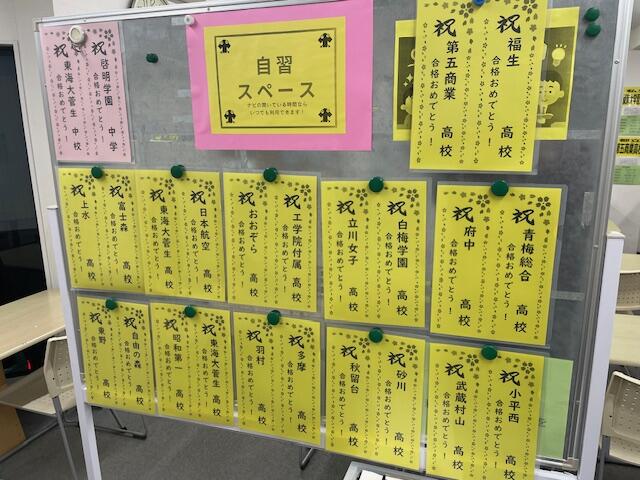 祝 啓明学園 中学 合格おめでとう！
祝 東海大菅生 中校 合格おめでとう！
自習
スペース
ナビの開いている時間なら
いつでも利用できます！
祝 福生 高校 合格おめでとう！
祝 第五商業 高校 合格おめでとう！
祝 富士森 高校 合格おめでとう！
祝 上水 高校 合格おめでとう！
祝 日本航空 高校 合格おめでとう！
祝 東海大菅生 高校 合格おめでとう！
祝 工学院付属 高校 合格おめでとう！
祝 おおぞら 高校 合格おめでとう！
祝 白梅学園 高校 合格おめでとう！
祝 立川女子 高校 合格おめでとう！
祝 青梅総合 高校 合格おめでとう！
祝 府中 高校 合格おめでとう！
祝 自由の森 高校 合格おめでとう！
祝 東野 高校 合格おめでとう！
祝 東海大菅生 高校 合格おめでとう！
祝 昭和第一 高校 合格おめでとう！
祝 多摩 高校 合格おめでとう！
祝 羽村 高校 合格おめでとう！
祝 砂川 高校 合格おめでとう！
祝 秋留台 高校 合格おめでとう！
祝 小平西 高校 合格おめでとう！
祝 武蔵村山 高校 合格おめでとう！